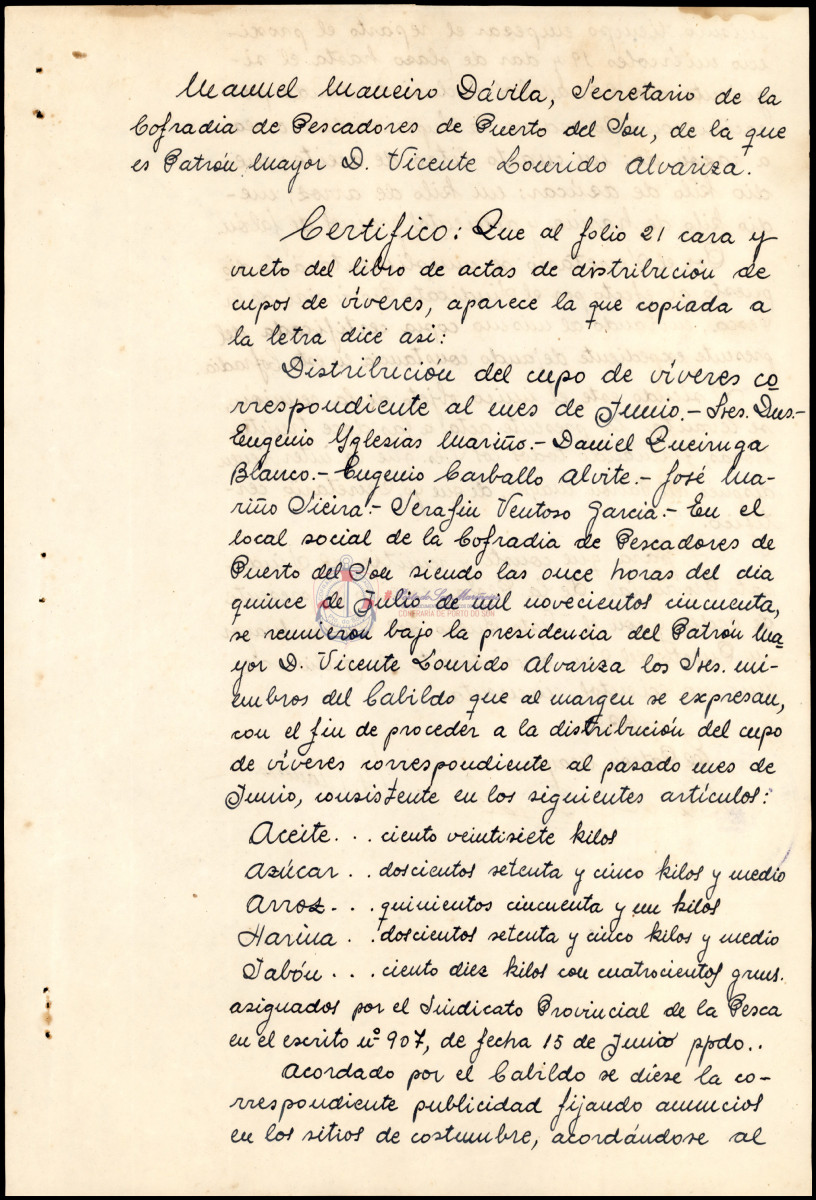 Manuel Maneiro Dávila, Secretario de la
Cofradia de Pescadores de Puerto del Son, de la que
es Patrón Mayor D. Vicente Lourido Alvariza.
Certifico: Que al folio 21 cara y
vueto del libro de actas de distribución de
cupos de víveres, aparece la que copiada a
la letra dice asi:
Distribución del cupo de víveres co
rrespondiente al mes de Junio.- Sres. Dns.-
Eugenio Yglesias Mariño.- Daniel Queiruga
Blanco.- Eugenio Carballo Alvite.- José Ma-
riño Sieira.- Serafin Ventoso Garcia.- En el
local social de la Cofradia de Pescadores de
Puerto del Son siendo las once horas del dia
quince de Julio de mil novecientos cincuenta,
CONFRARÍA DE PORTO DO SON
se reunieron bajo la presidencia del Patrón Ma
yor D. Vicente Lourido Alvariza los Sres. mi-
embros del Cabildo que al margen se expresan,
con el fin de proceder a la distribución del cupo
de víveres correspondiente al pasado mes de
Junio, consistente en los siguientes artículos:
Aceite... ciento veintisiete kilos
Azúcar.. doscientos setenta y cinco kilos y medio
Arroz... quinientos cincuenta y un kilos
Harina.. doscientos setenta y cinco kilos y medio
Jabón... ciento diez kilos con cuatrocientos grms.
asignados por el Sindicato Provincial de la Pesca
en el escrito nº 907, de fecha 15 de Junio ppdo..
Acordado por el Cabildo se diese la co-
rrespondiente publicidad fijando anuncios
en los sitios de costumbre, acordándose al